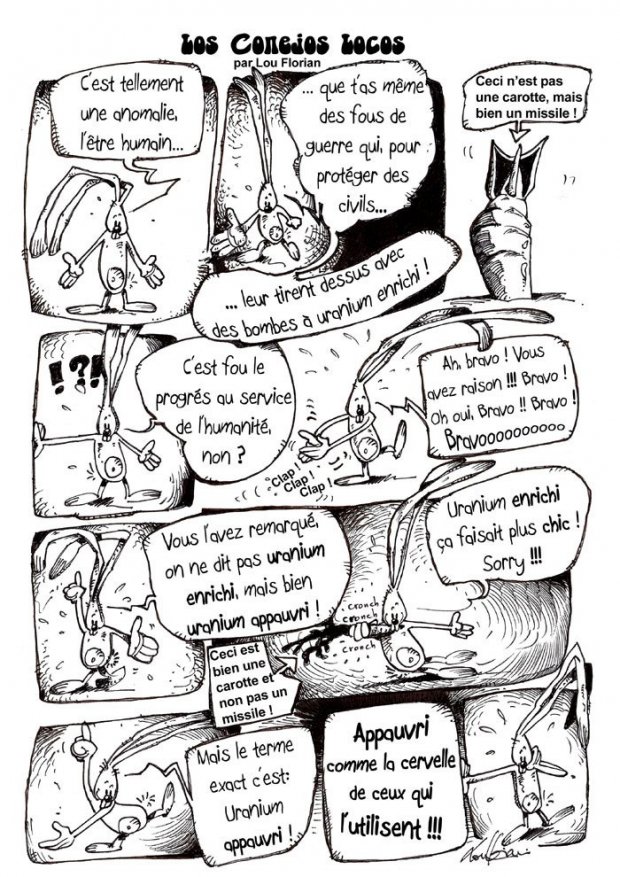 Los Conejos Locos
par Lou Florian
C'est tellement
une anomalie,
l'être humain...
... que t'as même
des fous de
guerre qui, pour
protéger des
civils...
... leur tirent dessus avec
des bombes à uranium enrichi !
Ceci n'est pas
une carotte, mais
bien un missile !
!?!
C'est fou le
progrés au service
de l'humanité,
non ?
Clap !
Clap !
Clap !
Ah, bravo ! Vous
avez raison !!! Bravo !
Oh oui, Bravo !! Bravo !
Bravooooooooooo
Vous l'avez remarqué,
on ne dit pas uranium
enrichi, mais bien
uranium appauvri !
Ceci est
bien une
carotte et
non pas un
missile !
Cronch
Cronch
Cronch
Uranium enrichi
ça faisait plus chic !
Sorry !!!
Mais le terme
exact c'est:
Uranium
appauvri !
Appauvri
comme la cervelle
de ceux qui
l'utilisent !!!